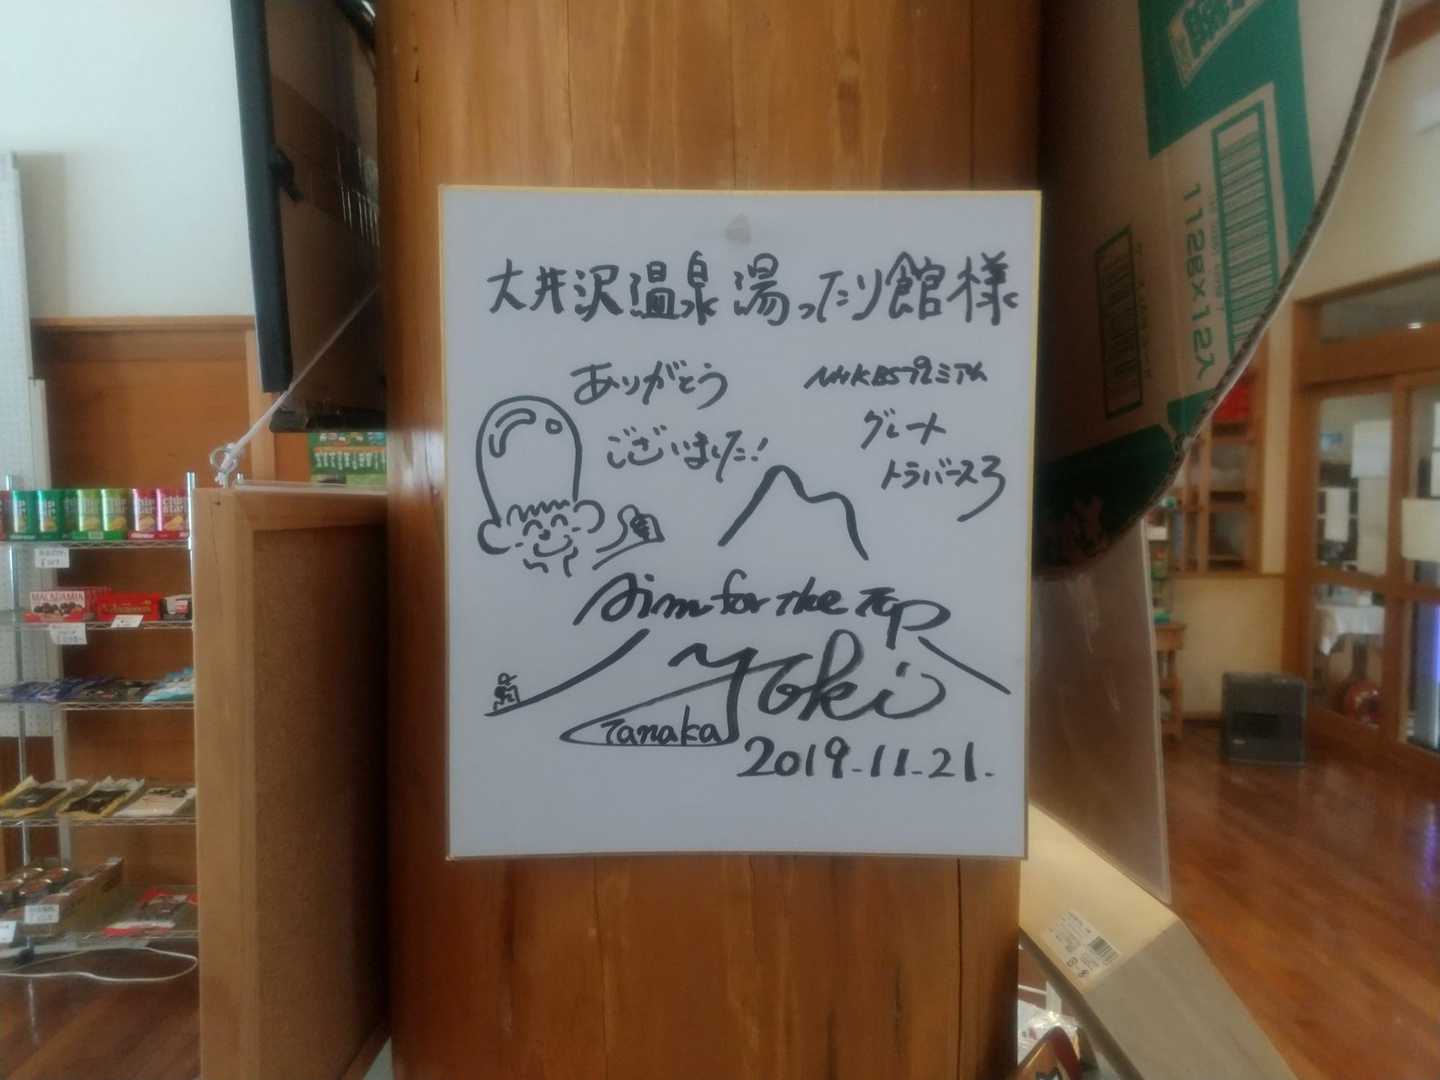 大井沢温泉 湯ったり館様
ありがとう
ございました!
NHKBSプレミアム
グレート
トラバース3
Aim for the Top
Yoki
Tanaka
2019.11.21.
MACADAMIA
112g×12入